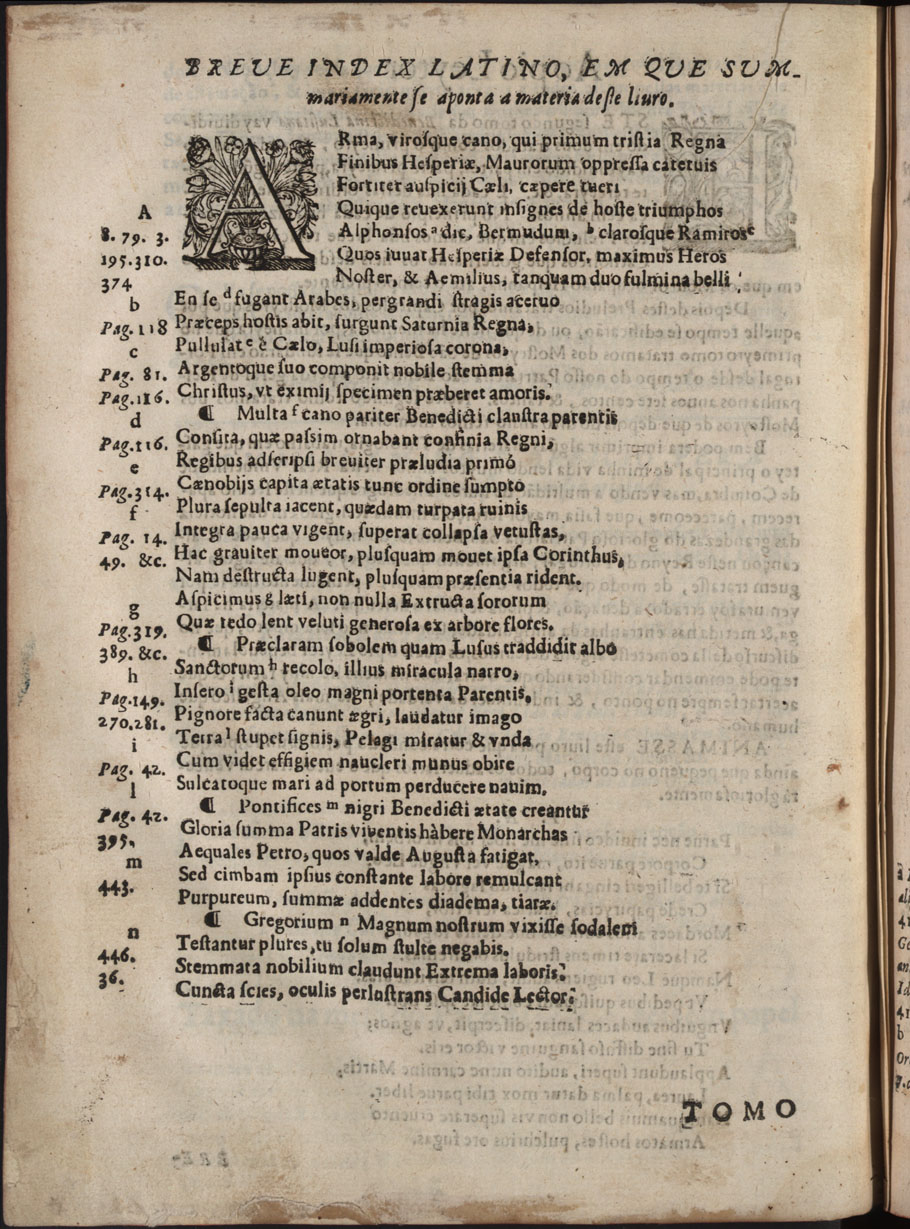 BREVE INDEX LATINO, EM QUE SUM-
mariamente se aponta a materia deste liuro.
ARma, virosque cano, qui primum tristia Regna
Finibus Hesperiæ, Maurorum oppressa cateruis
Fortiter auspicij Cæli, cæpere tueri
Quique reuexerunt insignes de hoste triumphos
Alphonsos a dic, Bermudum, b clarosque Ramiros c
Quos iuuat Hesperiæ Defensor, maximus Heros
Noster, & Aemilius, tanquam duo fulmina belli;
En se d fugant Arabes, pergrandi stragis aceruo
Præceps hostis abit, surgunt Saturnia Regna,
Pullulat e è Cælo, Lusi imperiosa corona,
Argentoque suo componit nobile stemma
Christus, vt eximij specimen præberet amoris.
¶ Multa f cano pariter Benedicti claustra parentis
Consita, quæ passim ornabant confinia Regni,
Regibus adscripsi breuiter præludia primò
Cænobijs capita ætatis tunc ordine sumpto
Plura sepulta iacent, quædam turpata ruinis
Integra pauca vigent, superat collapsa vetustas,
Hac grauiter moueor, plusquam mouet ipsa Corinthus,
Nam destructa lugent, plusquam præsentia rident.
Aspicimus g læti, non nulla Extructa sororum
Quæ redo lent veluti generosa ex arbore flores.
¶ Præclaram sobolem quam Lusus traddidit albo
Sanctorum h recolo, illius miracula narro,
Insero i gesta oleo magni portenta Parentis,
Pignore facta canunt ægri, laudatur imago
Terra l stupet signis, Pelagi miratur & vnda
Cum videt effigiem naucleri munus obire
Sulcatoque mari ad portum perducere nauim.
¶ Pontifices m nigri Benedicti ætate creantur
Gloria summa Patris viuentis hàbere Monarchas
Aequales Petro, quos valde Augusta fatigat,
Sed cimbam ipsius constante labore remulcant
Purpureum, summæ addentes diadema, tiaræ.
¶ Gregorium n Magnum nostrum vixisse sodalem
Testantur plures, tu solum stulte negabis.
Stemmata nobilium claudunt Extrema laboris.
Cuncta scies, oculis perlustrans Candide Lector.
A
8. 79. 3.
195.310.
374
b
Pag.118
c
Pag. 81.
Pag.116.
d
Pag.116.
e
Pag.314.
f
Pag. 14.
49. &c.
g
Pag.319.
389. &c.
h
Pag.149.
270.281.
i
Pag. 42.
l
Pag. 42.
395.
m
443.
n
446.
36.
TOMO